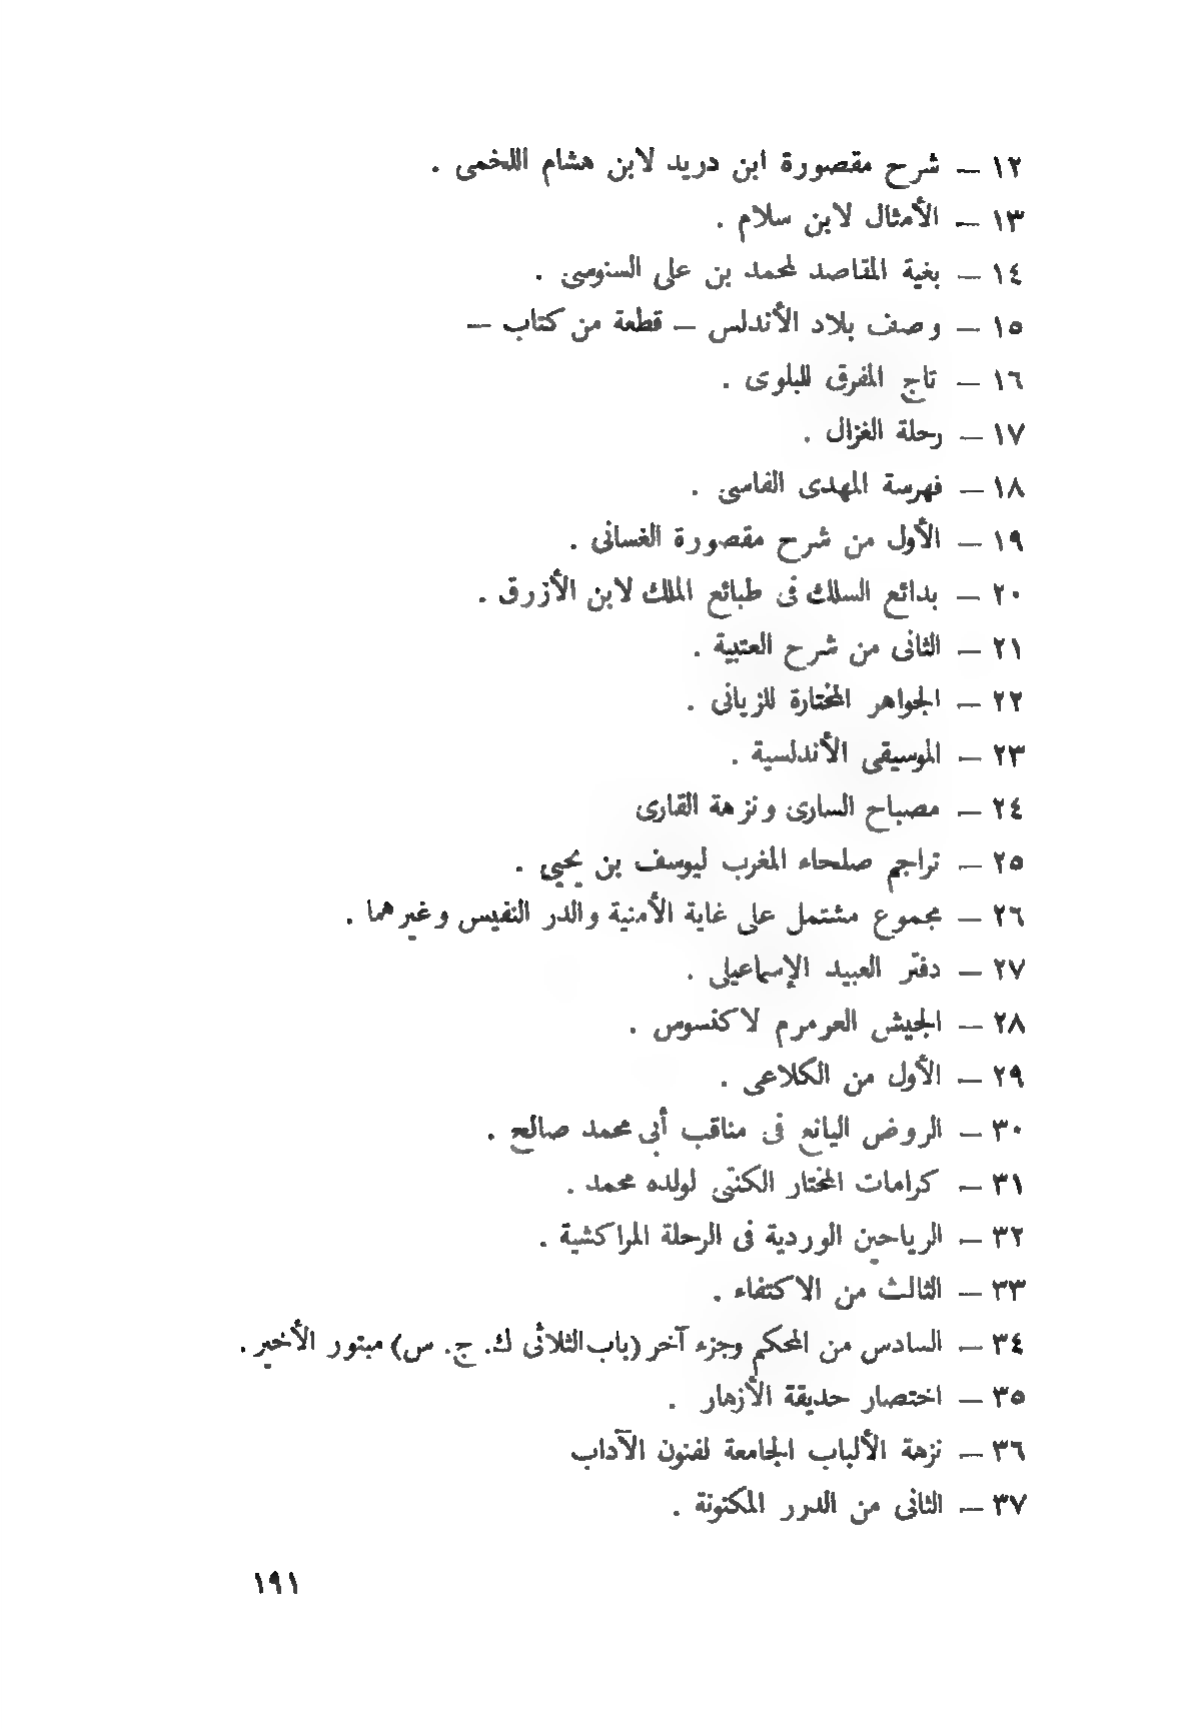 ١٢ — شرح مقصورة ابن دريد لابن هشام اللخمى .
١٣ — الأمثال لابن سلام .
١٤ — بغية المقاصد لمحمد بن على السنوسى .
١٥ — وصف بلاد الأندلس — قطعة من كتاب —
١٦ — تاج المفرق للبلوى .
١٧ — رحلة الغزال .
١٨ — فهرسة المهدى الفاسى .
١٩ — الأول من شرح مقصورة الغسانى .
٢٠ — بدائع السلك فى طبائع الملك لابن الأزرق .
٢١ — الثانى من شرح العتبية .
٢٢ — الجواهر المختارة للزيانى .
٢٣ — الموسيقى الأندلسية .
٢٤ — مصباح السارى ونزهة القارى
٢٥ — تراجم صلحاء المغرب ليوسف بن يحيى .
٢٦ — مجموع مشتمل على غاية الأمنية والدر النفيس وغيرهما .
٢٧ — دفتر العبيد الإسماعيلى .
٢٨ — الجيش العرمرم لاكنسوس .
٢٩ — الأول من الكلاعى .
٣٠ — الروض اليانع فى مناقب أبى محمد صالح .
٣١ — كرامات المختار الكنتى لولده محمد .
٣٢ — الرياحين الوردية فى الرحلة المراكشية .
٣٣ — الثالث من الاكتفاء .
٣٤ — السادس من المحكم وجزء آخر (باب الثلاثى ك. ج. س) مبتور الأخير .
٣٥ — اختصار حديقة الأزهار .
٣٦ — نزهة الألباب الجامعة لفنون الآداب
٣٧ — الثانى من الدرر المكنونة .
١٩١